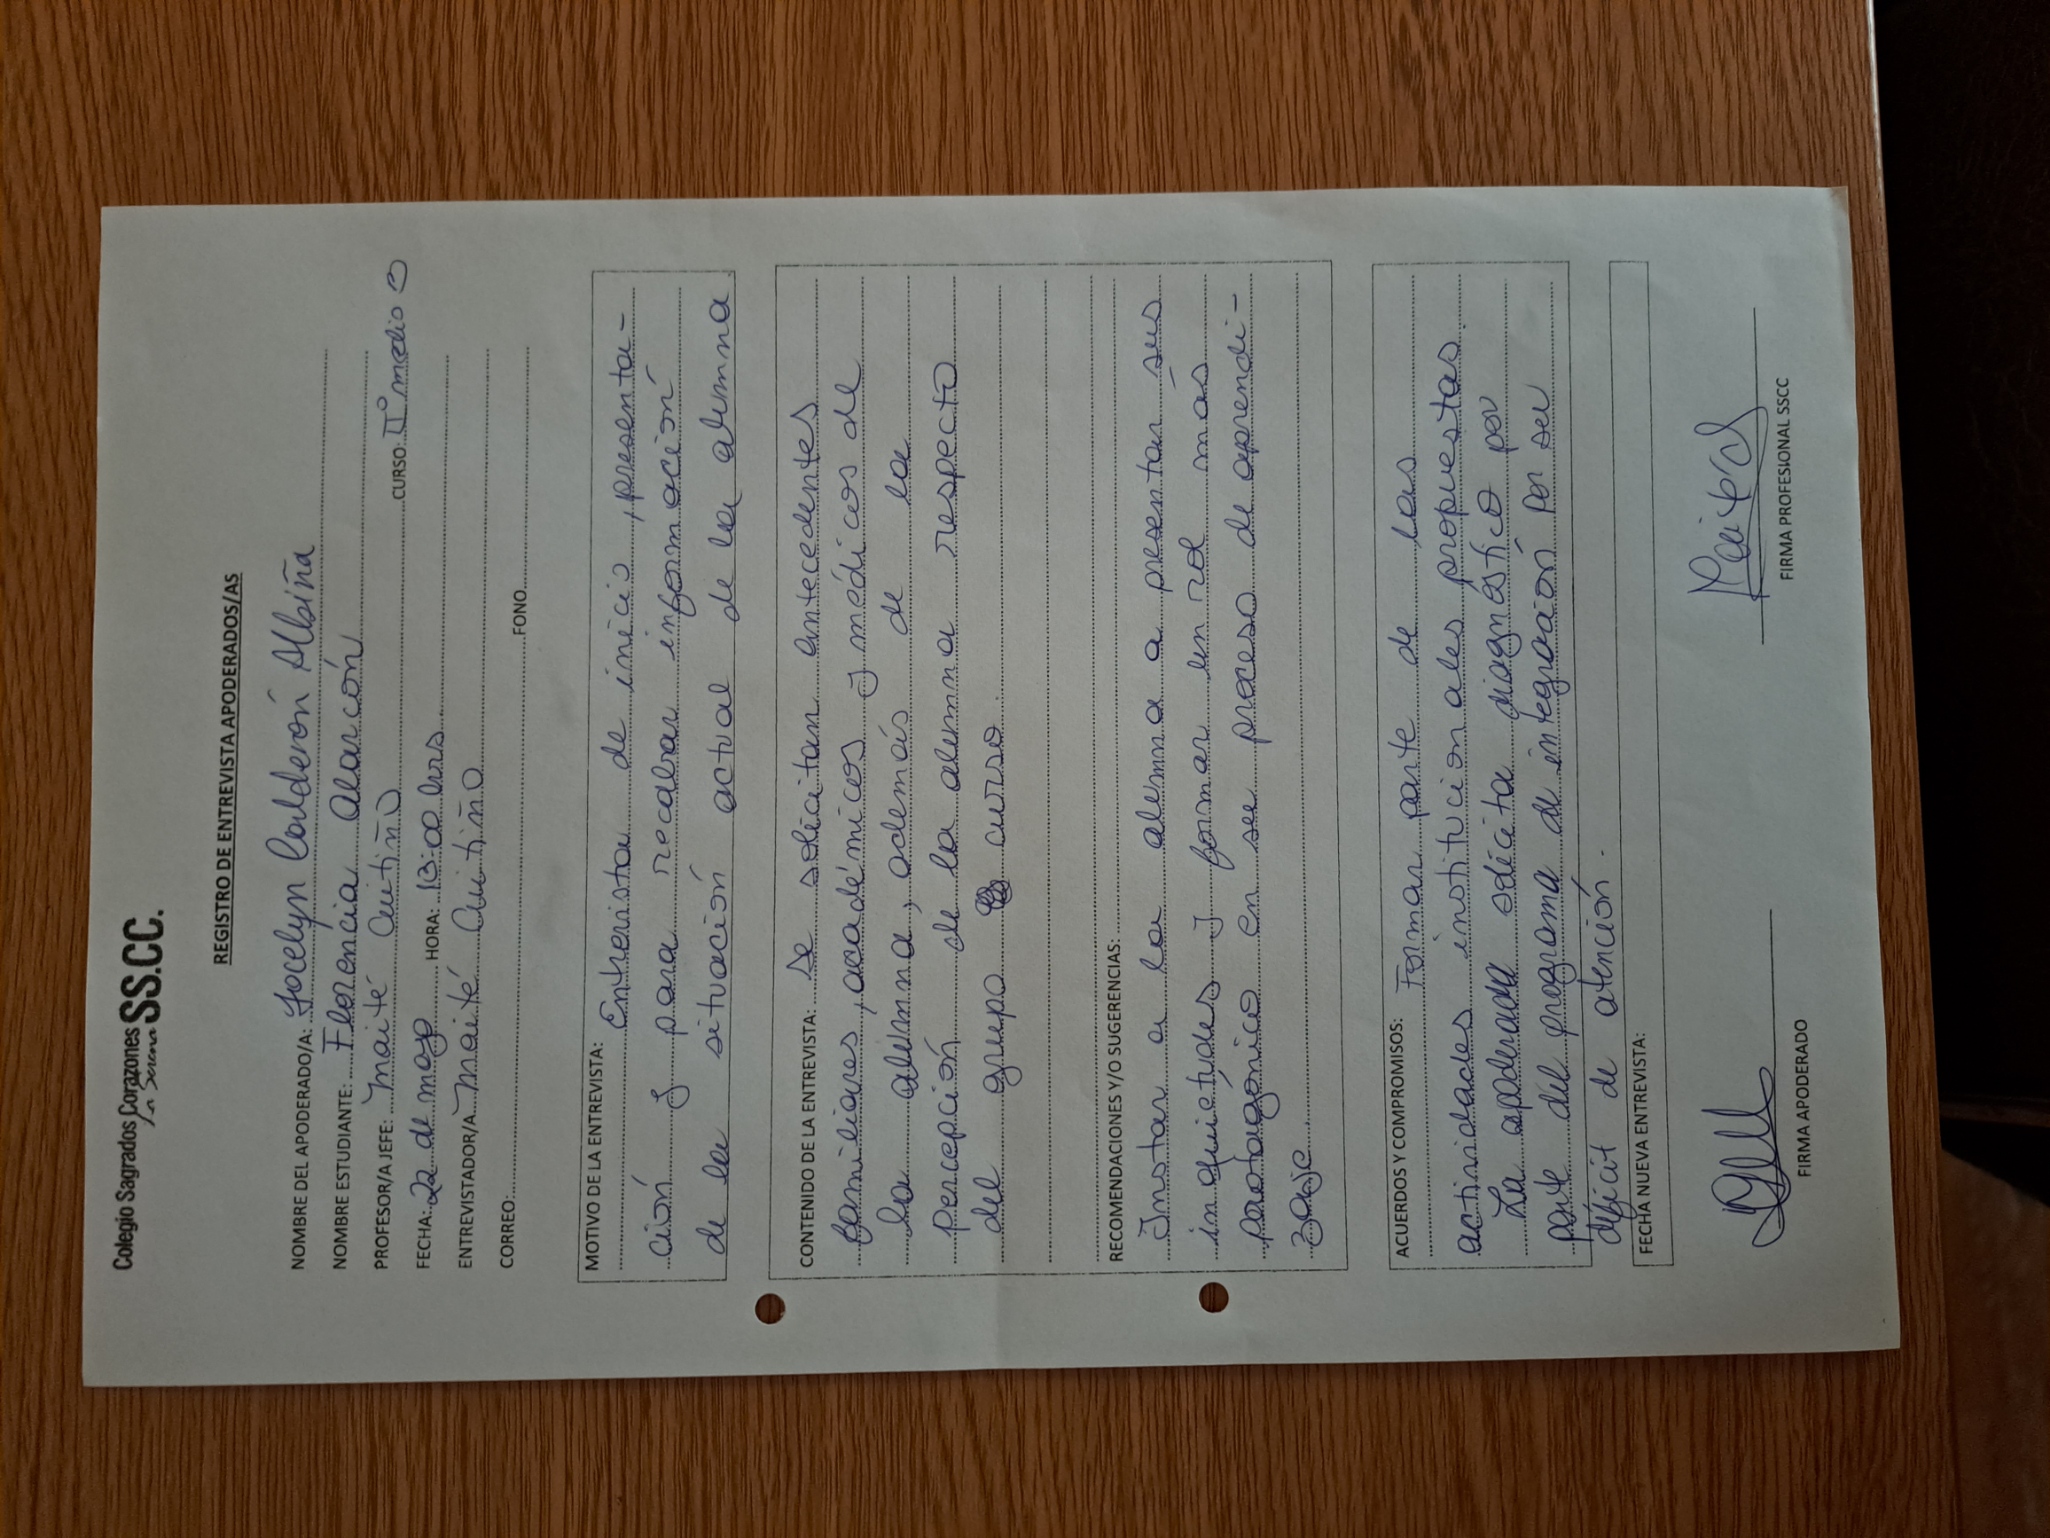 Colegio Sagrados Corazones SS.CC.
La Serena
REGISTRO DE ENTREVISTA APODERADOS/AS
NOMBRE DEL APODERADO/A: Jocelyn Calderón Albiña
NOMBRE ESTUDIANTE: Florencia Alarcón
PROFESOR/A JEFE: Maité Cuitiño CURSO: II° medio B
FECHA: 22 de mayo HORA: 13:00 hrs.
ENTREVISTADOR/A Maité Cuitiño
CORREO: FONO
MOTIVO DE LA ENTREVISTA: Entrevista de inicio, presenta-
ción y para recabar información
de la situación actual de la alumna
CONTENIDO DE LA ENTREVISTA: Se solicitan antecedentes
familiares, académicos y médicos de
la alumna, además de la
percepción de la alumna respecto
del grupo curso.
RECOMENDACIONES Y/O SUGERENCIAS:
Instar a la alumna a presentar sus
inquietudes y formar un rol más
protagónico en su proceso de aprendi-
zaje.
ACUERDOS Y COMPROMISOS: Formar parte de las
actividades institucionales propuestas.
La apoderada solicita diagnóstico por
parte del programa de integración por su
déficit de atención.
FECHA NUEVA ENTREVISTA:
FIRMA APODERADO FIRMA PROFESIONAL SSCC